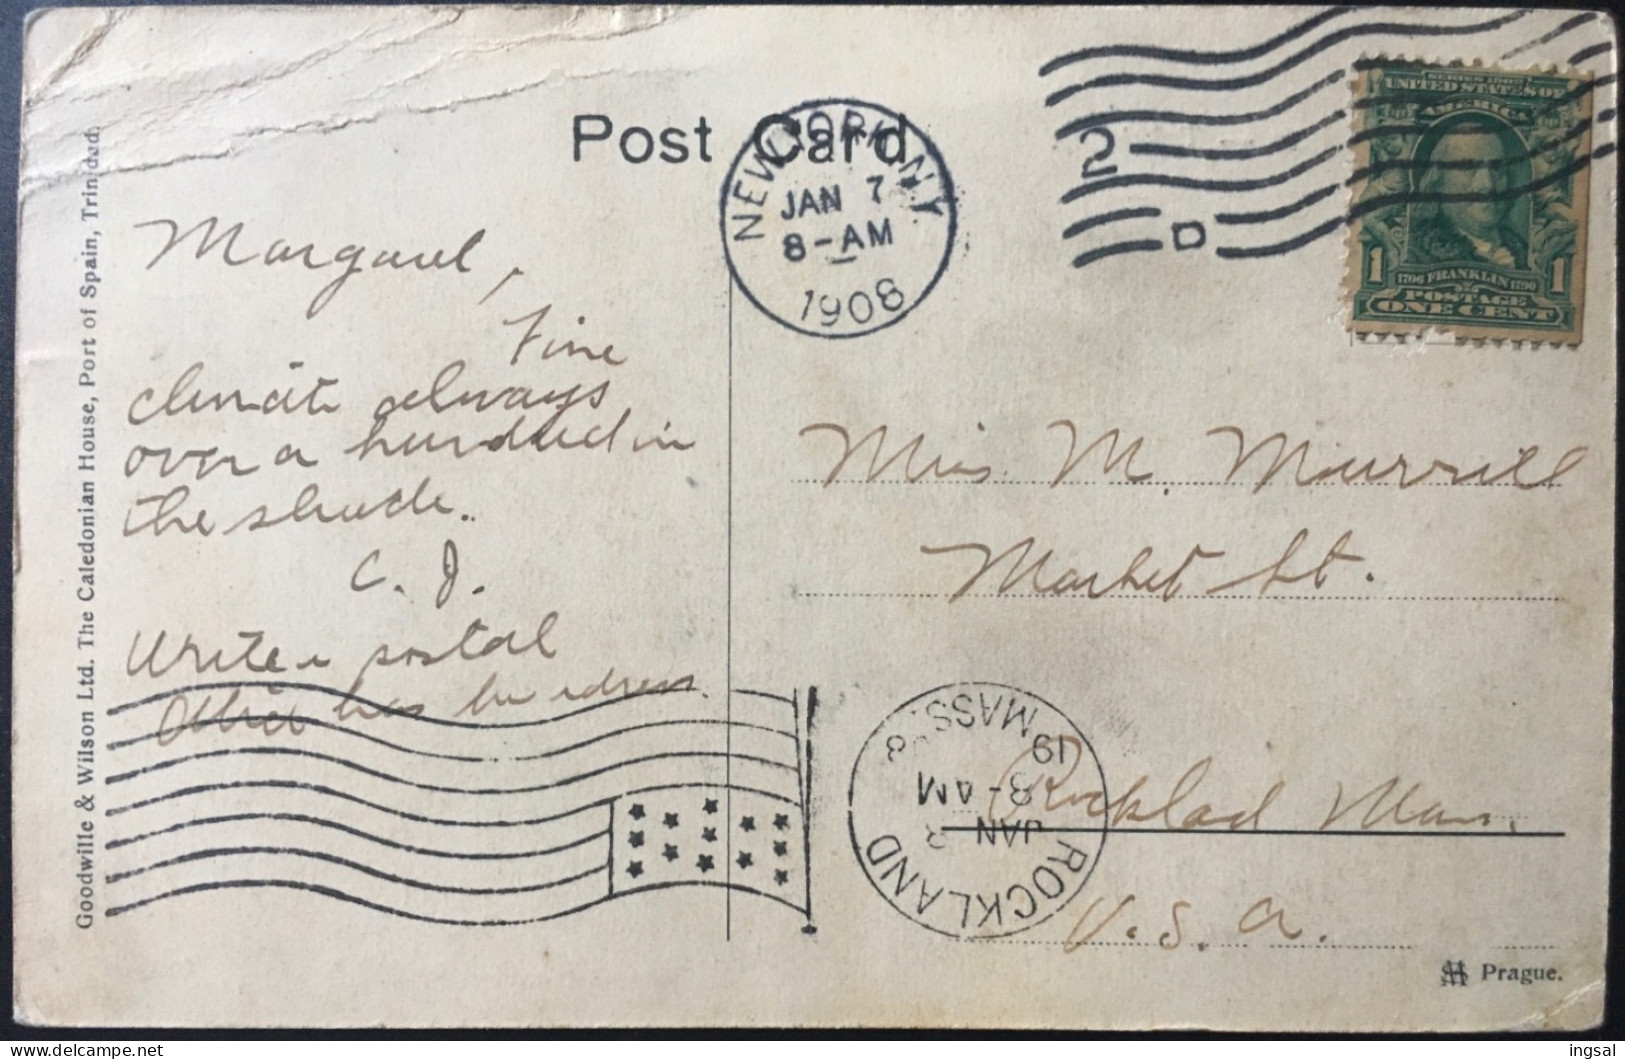 Post Card
NEW YORK, N.Y.
JAN 7
8-AM
1908
2
D
SERIES 1902
UNITED STATES OF
AMERICA
1 1
1706 FRANKLIN 1790
POSTAGE
ONE CENT
Goodwille & Wilson Ltd. The Caledonian House, Port of Spain, Trinidad.
Margaret,
Fine
climate always
over a hundred in
the shade.
C. J.
Write a postal
has her address.
Miss M. Murrill
Market St.
Rockland Mass.
U.S.A.
ROCKLAND
JAN 8
8-AM
1908
MASS.
Prague.
ingsal